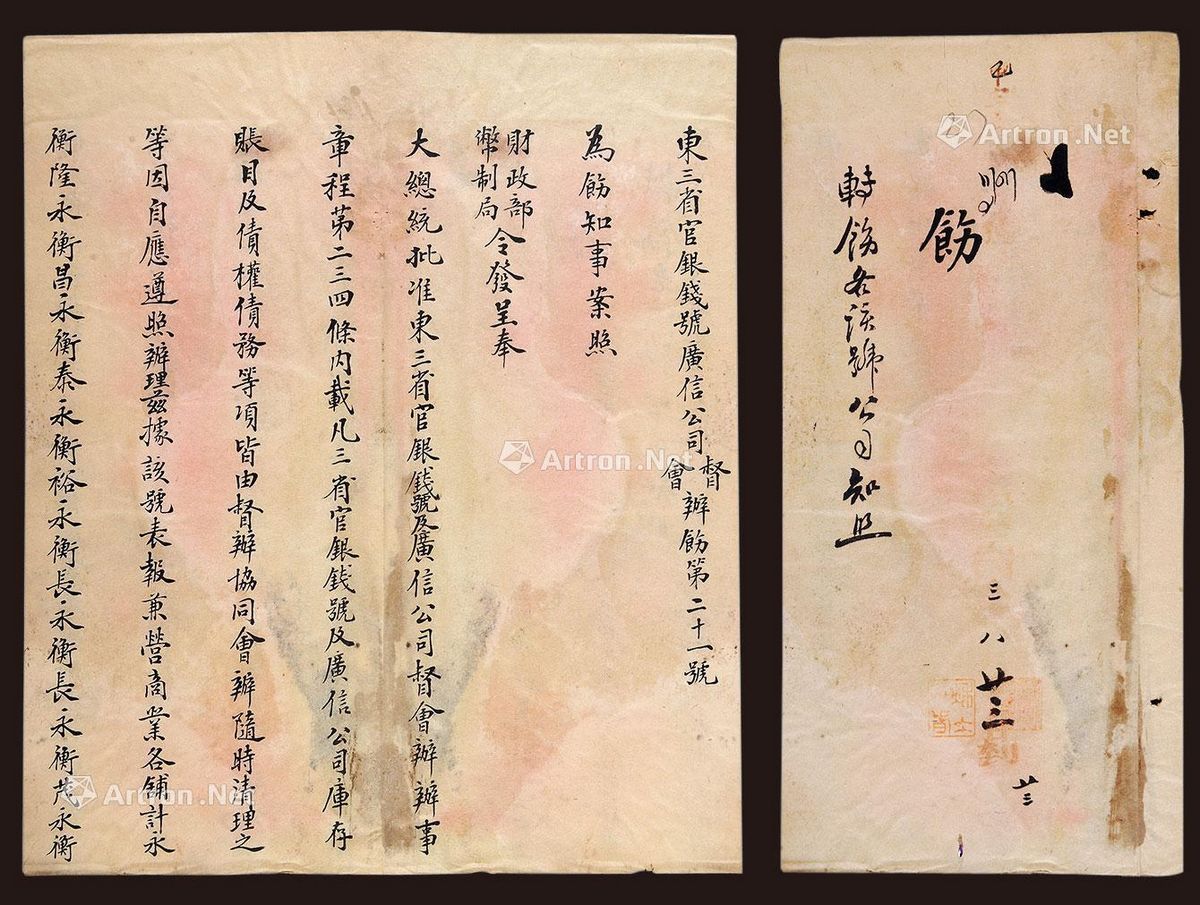 東三省官銀錢號廣信公司督會辦飭第二十一號
為飭知事案照
財政部幣制局令發呈奉
大總統批准東三省官銀錢號及廣信公司督會辦辦事
章程第二三四條內載凡三省官銀錢號及廣信公司庫存
賬目及債權債務等項皆由督辦協同會辦隨時清理之
等因自應遵照辦理茲據該號表報兼營商業各舖計永
衡隆永衡昌永衡泰永衡裕永衡長永衡長永衡茂永衡
飭
轉飭各該號公司知照
三 八 廿三
廿三
到
Artron.Net
Artron.Net
Artron.Net
Artron.Net